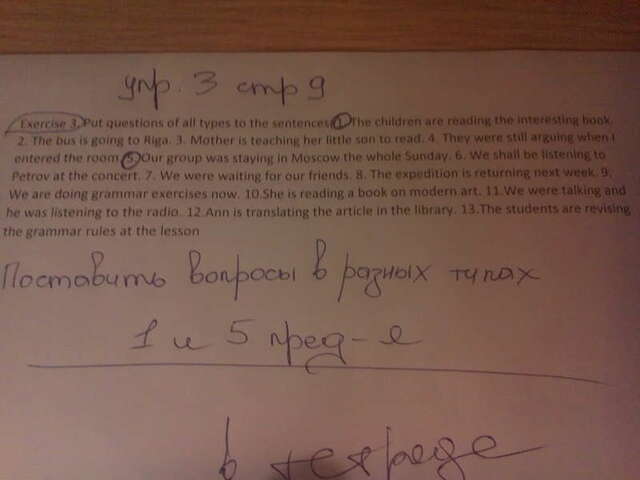 упр. 3 стр 9
Exercise 3. Put questions of all types to the sentences 1. The children are reading the interesting book.
2. The bus is going to Riga. 3. Mother is teaching her little son to read. 4. They were still arguing when I
entered the room 5. Our group was staying in Moscow the whole Sunday. 6. We shall be listening to
Petrov at the concert. 7. We were waiting for our friends. 8. The expedition is returning next week. 9.
We are doing grammar exercises now. 10.She is reading a book on modern art. 11.We were talking and
he was listening to the radio. 12.Ann is translating the article in the library. 13.The students are revising
the grammar rules at the lesson
Поставить вопросы в разных типах
1 и 5 пред-е
в тетраде